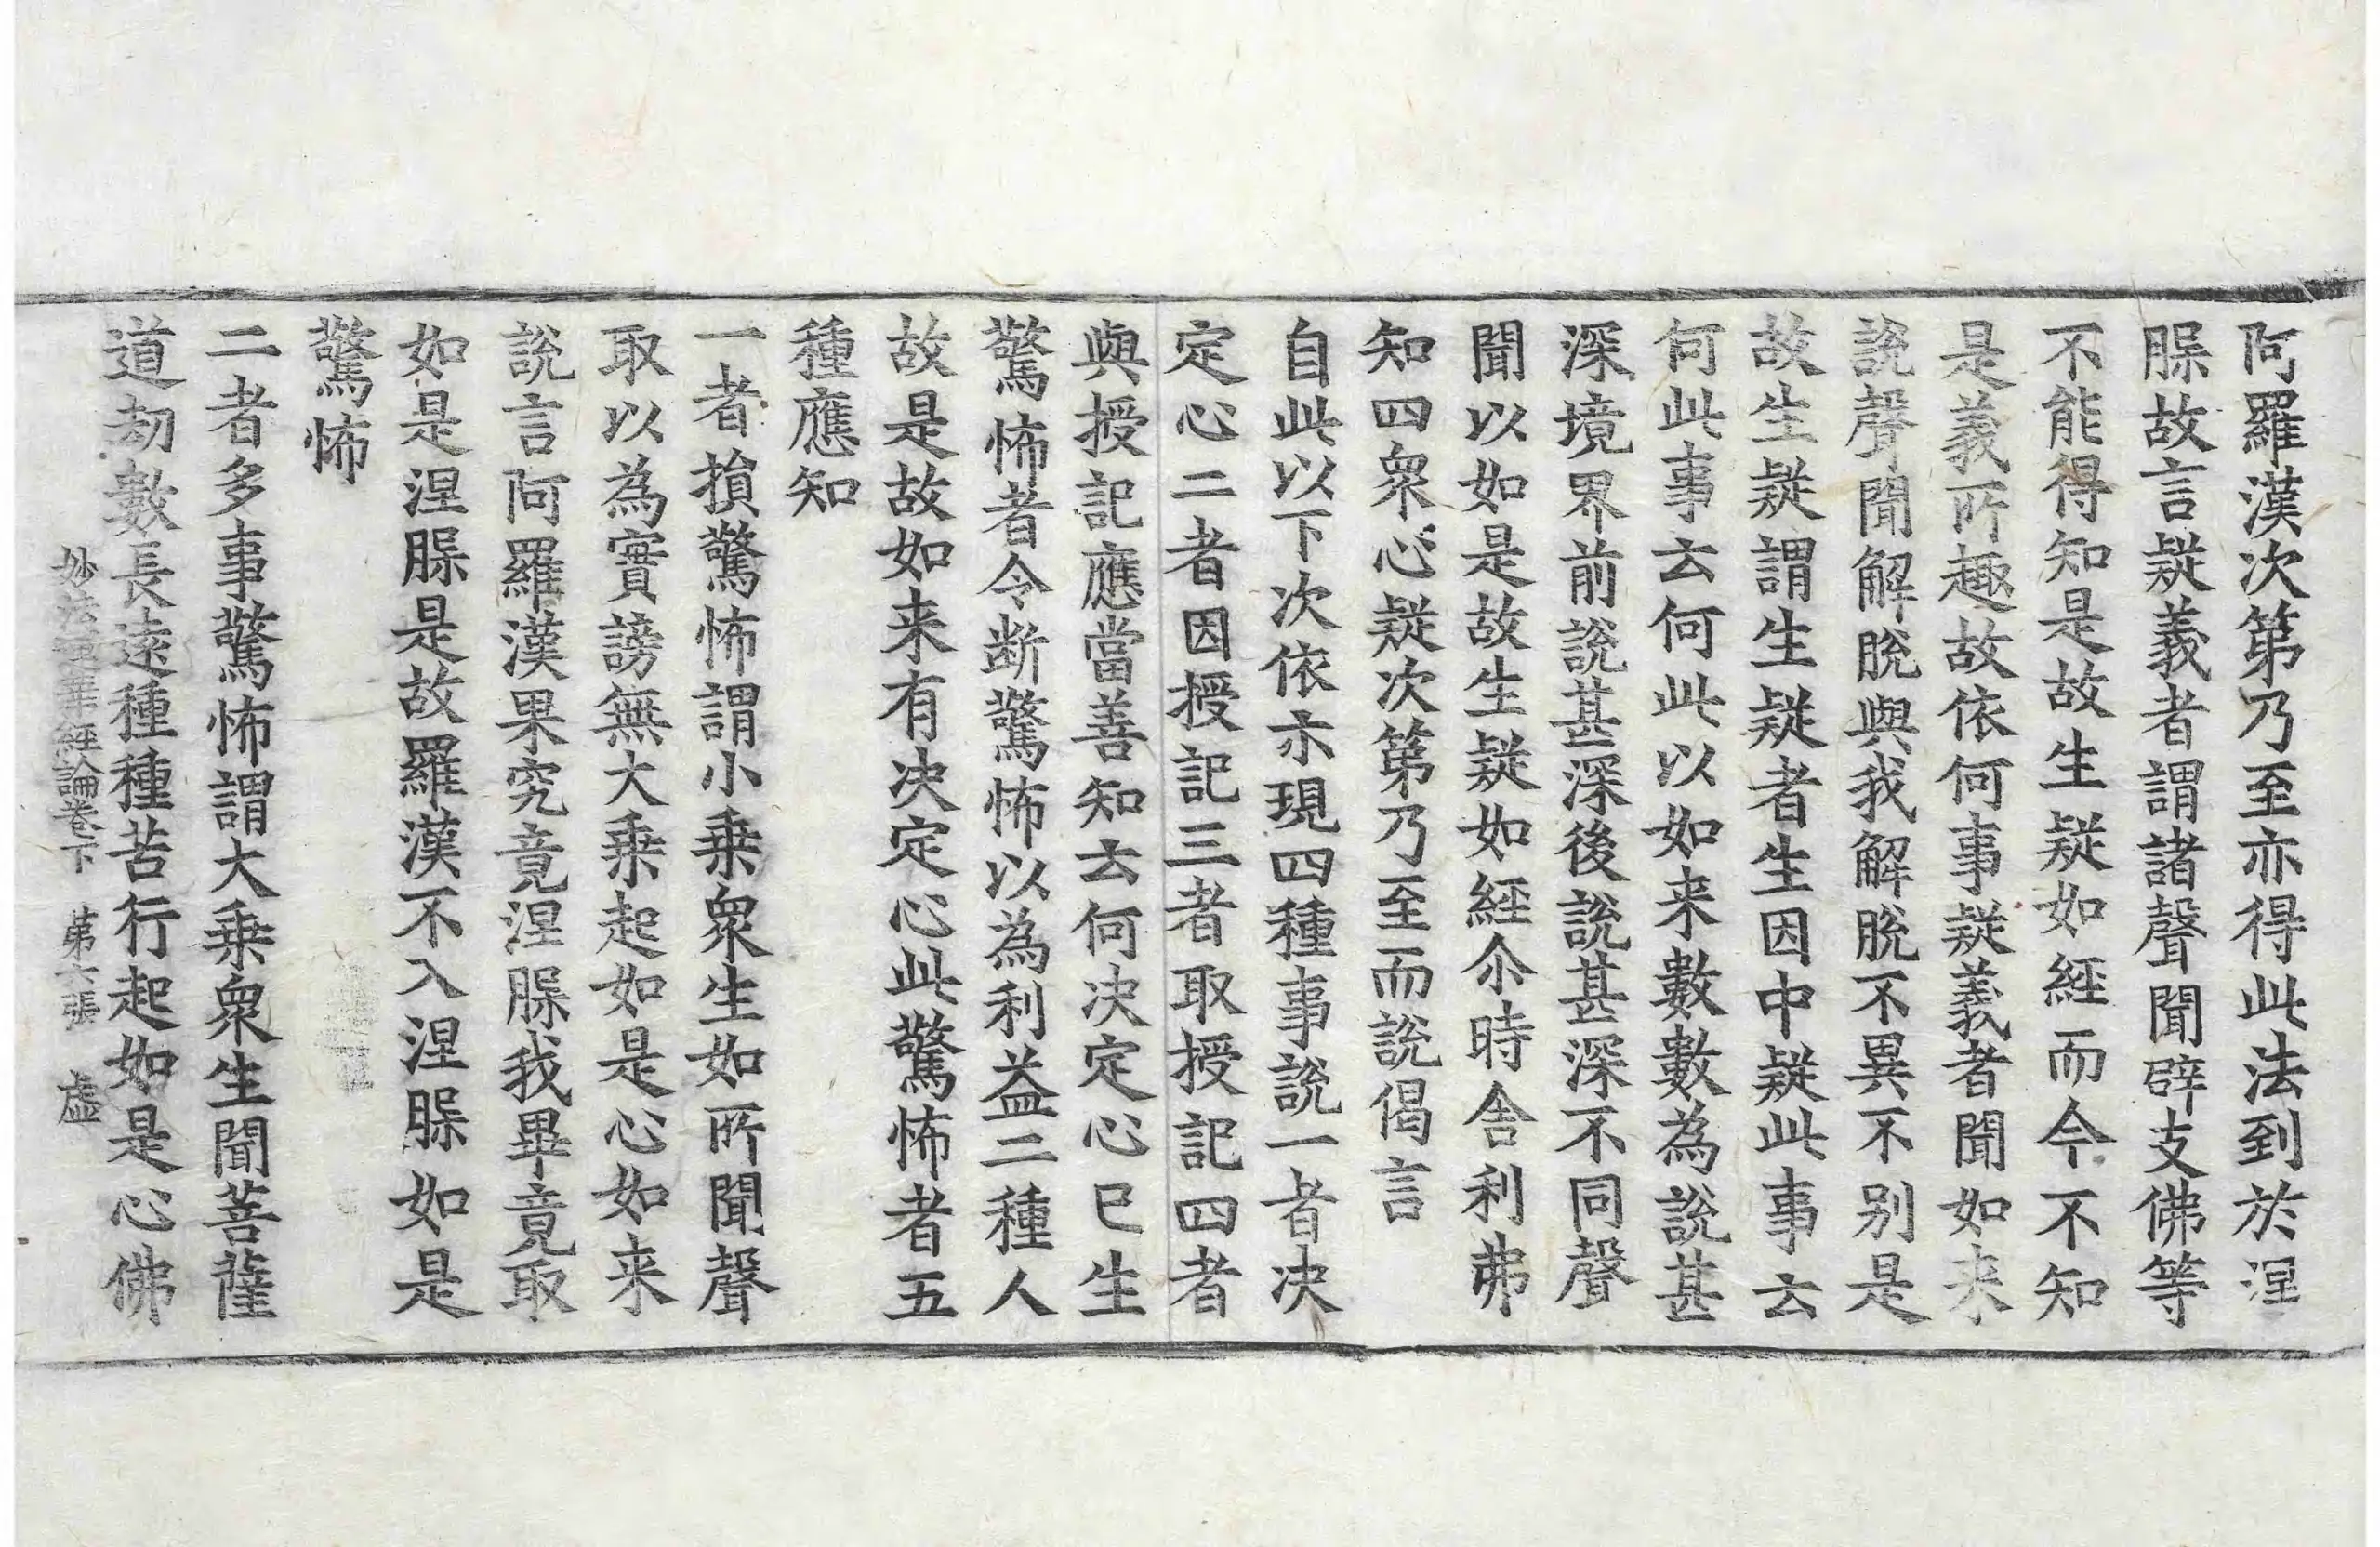 阿羅漢次第乃至亦得此法到於涅
𦙁故言疑義者謂諸聲聞辟支佛等
不能得知是故生疑如經而今不知
是義所趣故依何事疑義者聞如来
說聲聞解脫與我解脫不異不别是
故生疑謂生疑者生因中疑此事云
何此事云何此以如来數數為說甚
深境界前說甚深後說甚深不同聲
聞以如是故生疑如經尒時舍利弗
知四衆心疑次第乃至而說偈言
自此以下次依示現四種事說一者决
定心二者因授記三者取授記四者
與授記應當善知云何决定心已生
驚怖者令断驚怖以為利益二種人
故是故如来有决定心此驚怖者五
種應知
一者損驚怖謂小乗衆生如所聞聲
取以為實謗無大乗起如是心如来
說言阿羅漢果究竟涅𦙁我畢竟取
如是涅𦙁是故羅漢不入涅𦙁如是
驚怖
二者多事驚怖謂大乗衆生聞菩薩
道劫數長遠種種苦行起如是心佛
妙法蓮華經論卷下　第六張　虛